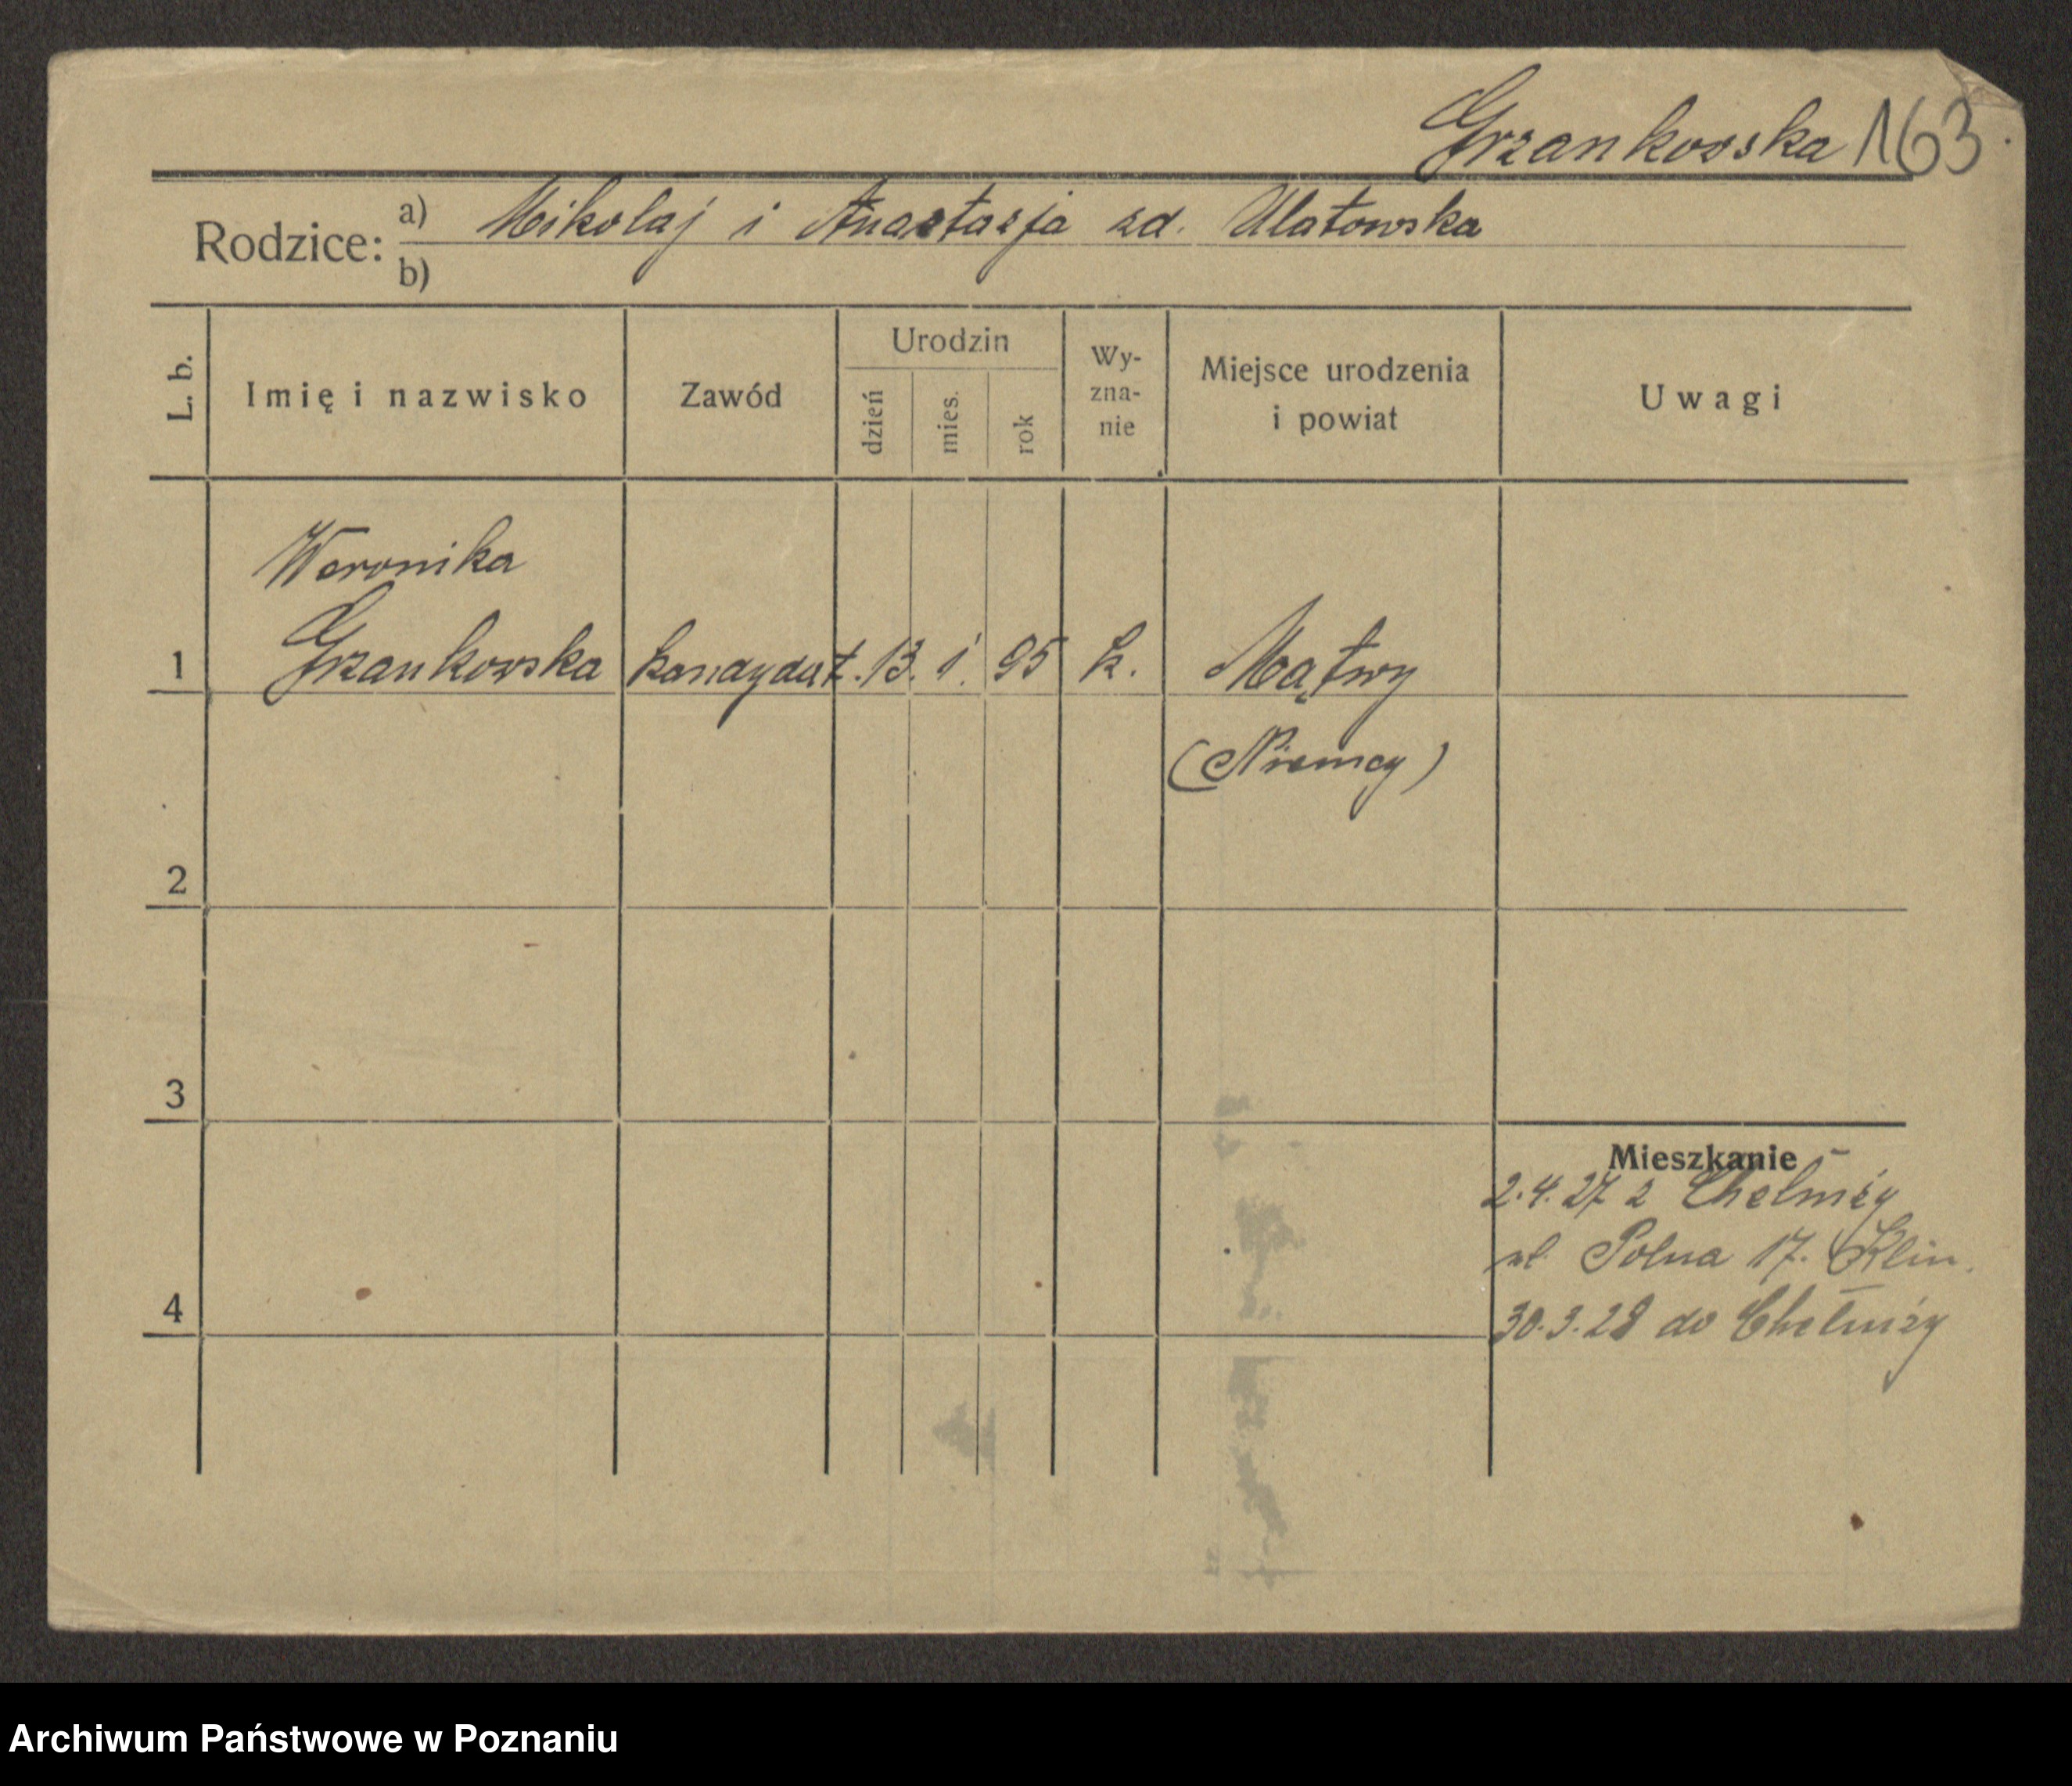 Grzankowska 163.
Rodzice: a) Mikołaj i Anastazja zd. Ulatowska
b)
L. b.
Imię i nazwisko
Zawód
Urodzin
dzień
mies.
rok
Wy-
zna-
nie
Miejsce urodzenia
i powiat
Uwagi
Weronika
1 Grzankowska kandydat. 13. 1. 95 k. Mątwy
(Niemcy)
2
3
Mieszkanie
2.4.27 z Chełmży
ul. Polna 17. Klin.
4 30.3.28 do Chełmży
Archiwum Państwowe w Poznaniu